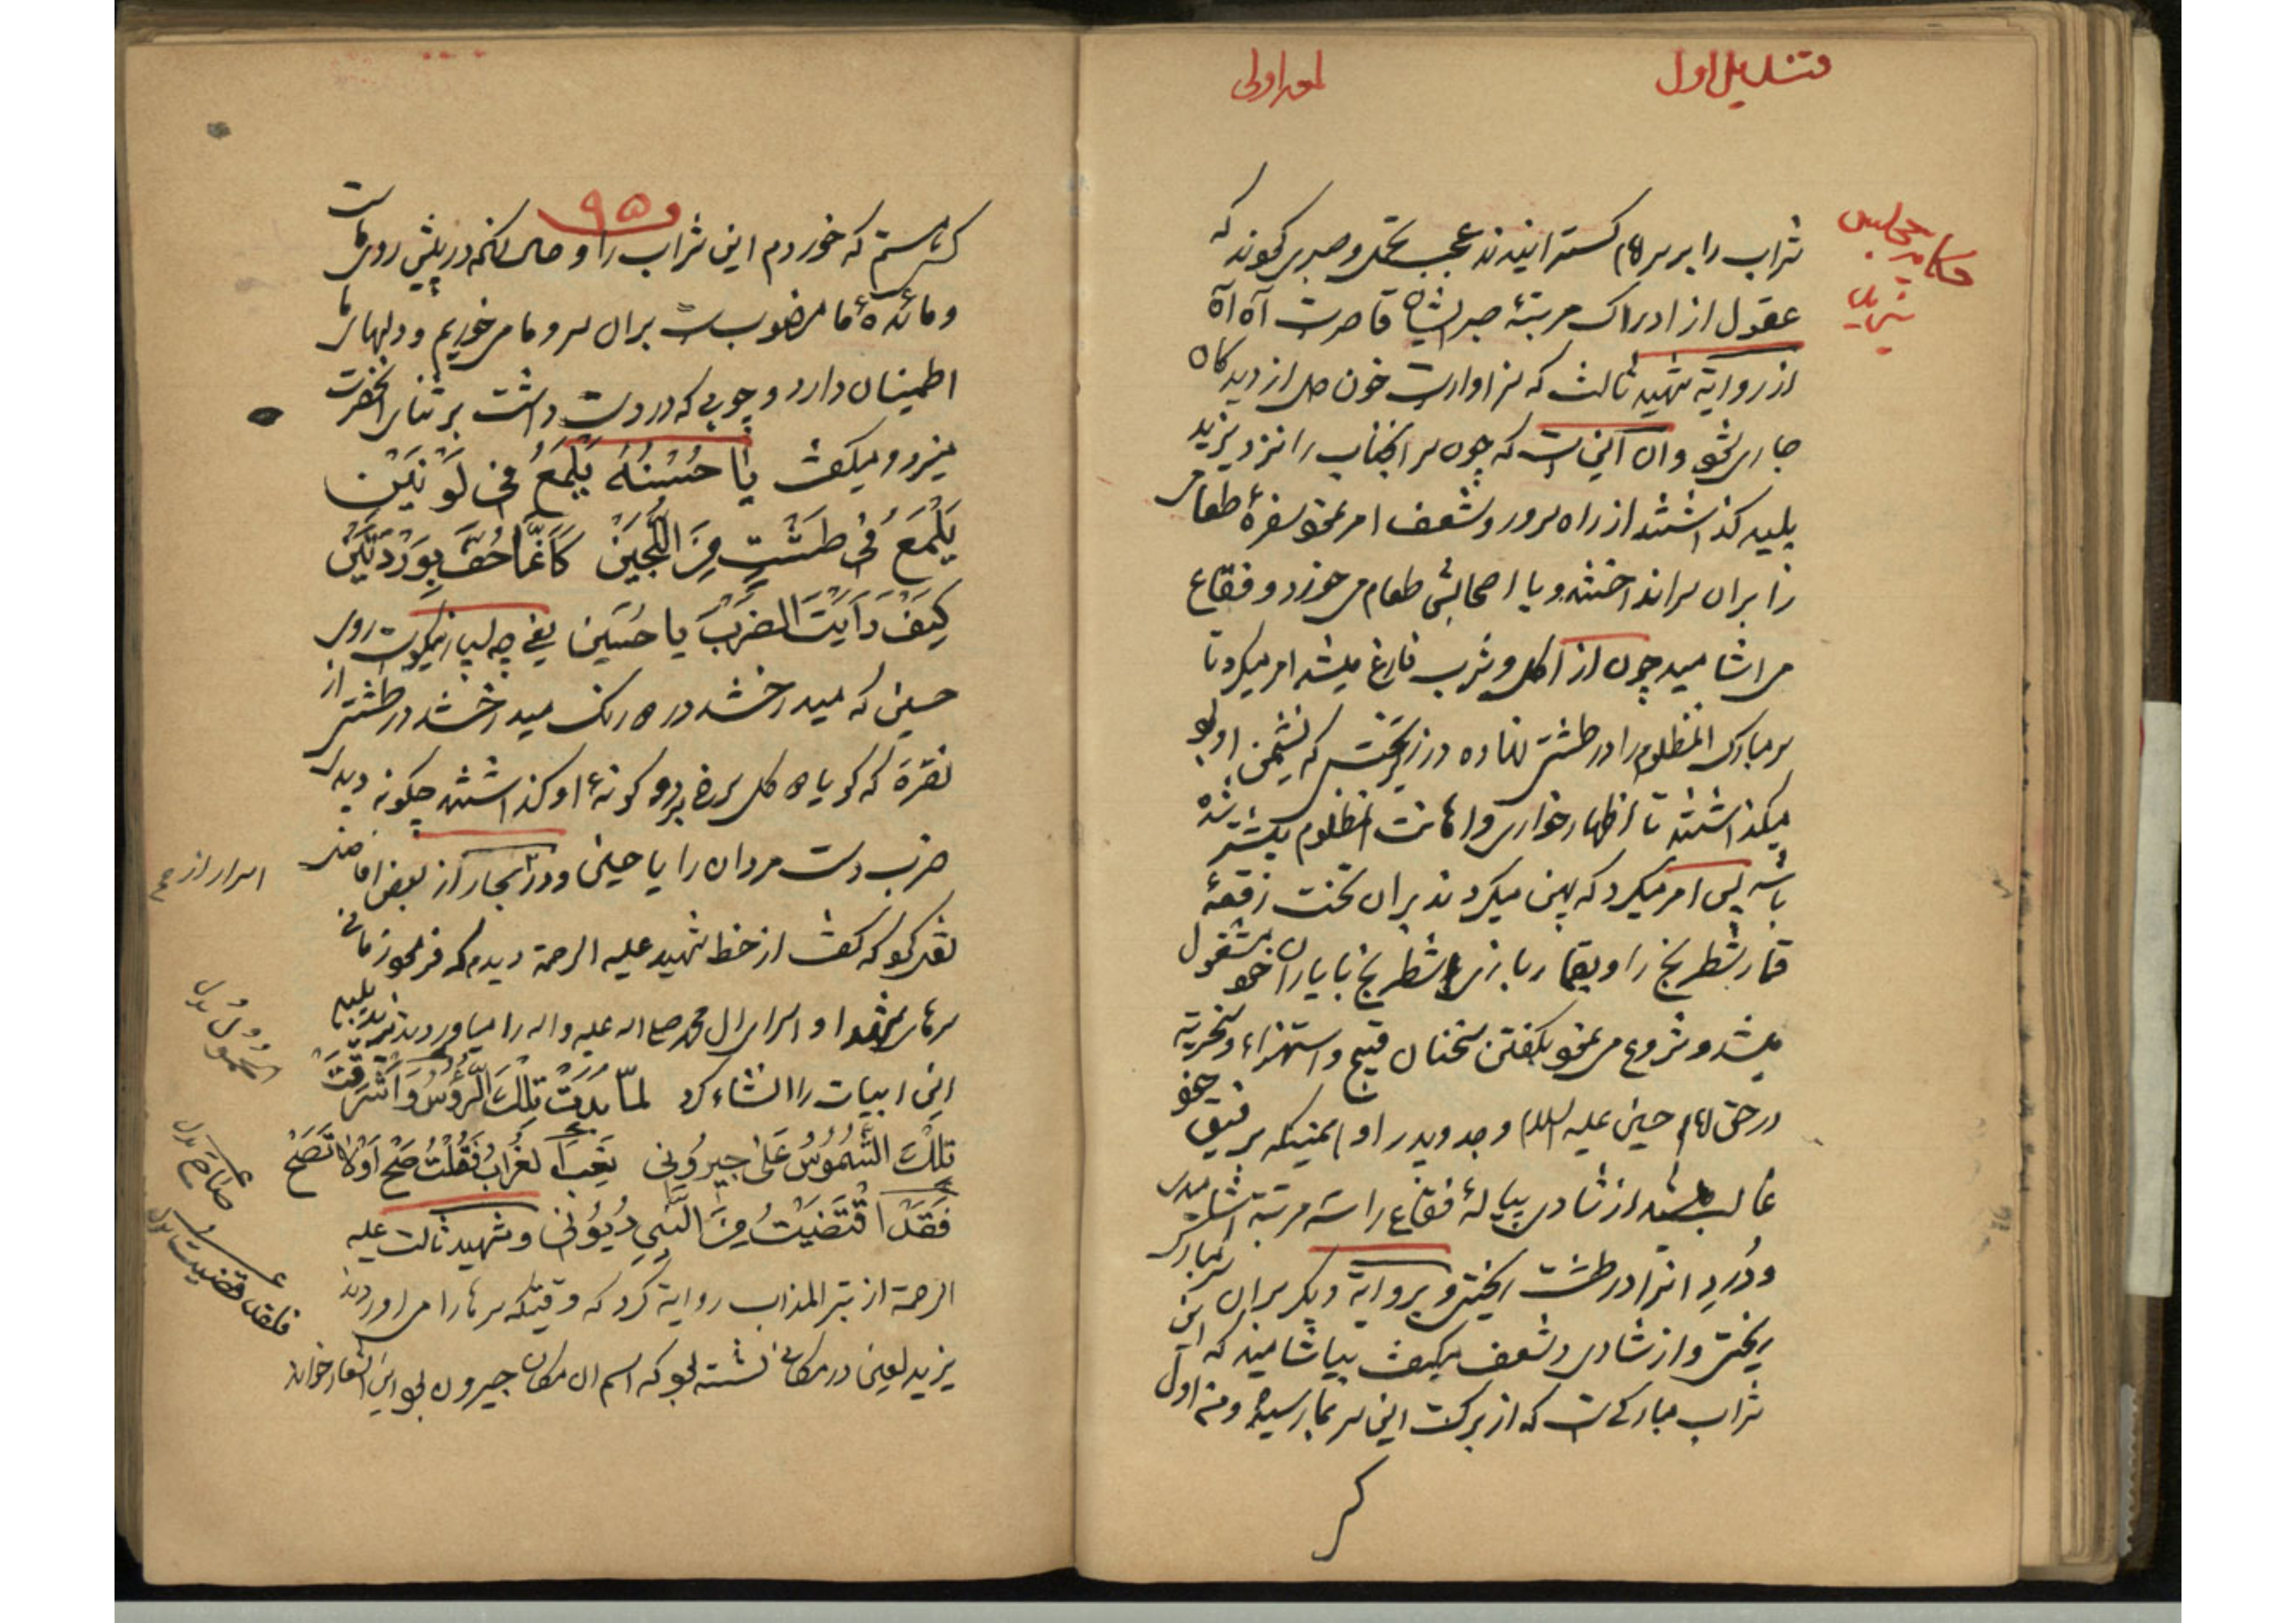 قندیل اول
لمعه اولی
حکایة مجلس
یزید
شراب را بر سر امام کسترانیدند عجب تحمل و صبری که
عقول از ادراک مرتبهٔ صبر ایشان قاصرست آه آه
از روایة شهید ثالث که سزاوارست خون دل از دیدکان
جاری شود و آن اینست که چون سر آنجناب را نزد یزید
پلید کذاشتند از راه سرور و شعف امر نمود سفرهٔ طعام
را بر آن سر انداختند و با اصحابش طعام می خورد و فقاع
می آشامید چون از اکل و شرب فارغ میشد امر میکرد تا
سر مبارک آنمظلوم را در طشتی نهاده در زیر تختی که نشیمن او بود
میکذاشتند تا اظهار خواری و اهانت آنمظلوم بیشتر شده
باشد پس امر میکرد که پهن میکردند بر آن تخت رقعهٔ
قمار شطرنج را و بقمار بازی شطرنج با یاران خود مشغول
میشد و شروع می نمود بکفتن سخنان قبیح و استهزاء و سخریه
در حق امام حسین علیه السلام و جد و پدر او همینکه بر رفیق خود
غالب میشد از شادی پیالهٔ فقاع را سه مرتبه می آشامید
و دُردِ آنرا در طشت ریختی و بروایة دیکر بر آن سر مبارک
ریختی و از شادی و شعف میکفت بیاشامید که این
شراب مبارکیست که از برکت این سر بما رسیده و من اول
کس
۹۵
کسی هستم که خوردم این شراب را و حال آنکه در پیش روی ماست
و مائدهٔ ما منصوبست بر آن سر و ما می خوریم و دلهای ما
اطمینان دارد و چوبی که در دست داشت بر ثنای آنحضرت
میزد و میکفت یٰا حُسْنُهُ یَلْمَعُ فی لَوْنَیْن
یَلْمَعُ فی طَشْتٍ مِنَ اللُّجَیْن کَاَنَّمٰا حُفَّ بِوَرْدَتَیْن
کَیْفَ رَاَیْتَ الضَرْبَ یا حُسَین یعنی چه بسیار نیکوست روی
حسین که میدرخشد در دو رنک میدرخشد در طشتی از
نقره که کویا دو کل سرخ بر دو کونهٔ او کذاشتند چکونه دیدی
ضرب دست مردان را یا حسین و در بحار از بعض افاضل
نقل کرد که کفت از خط شهید علیه الرحمة دیدم که فرمود زمانی
سرهای شهدا و اسرای آل محمد صلی الله علیه واله را میاوردند یزید پلید
این ابیات را انشاء کرد لمّا بَدَتْ تِلْکَ الرُّؤُسُ وَ اَشْرَقَتْ
تِلْکَ الشُّمُوسُ عَلیٰ جِیرُونی نَعِبَ الغُرٰابُ فَقُلْتُ صِحْ اَوْ لاٰ تَصِحْ
فَقَدْ اقْتَضَیْتُ مِنَ النَّبِی دُیُونی و شهید ثالث علیه
الرحمة از تبر المذاب روایة کرد که وقتیکه سرها را می اوردند
یزید لعین در مکانی نشسته بود که اسم آن مکان جیرون بود این اشعار خواند
اسرار از
الحُمُولُ بدل
صٰاحَ بدل
فلقد قضیتُ بدل